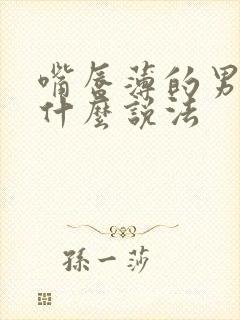 嘴唇薄的男
什麼說法
孫一莎